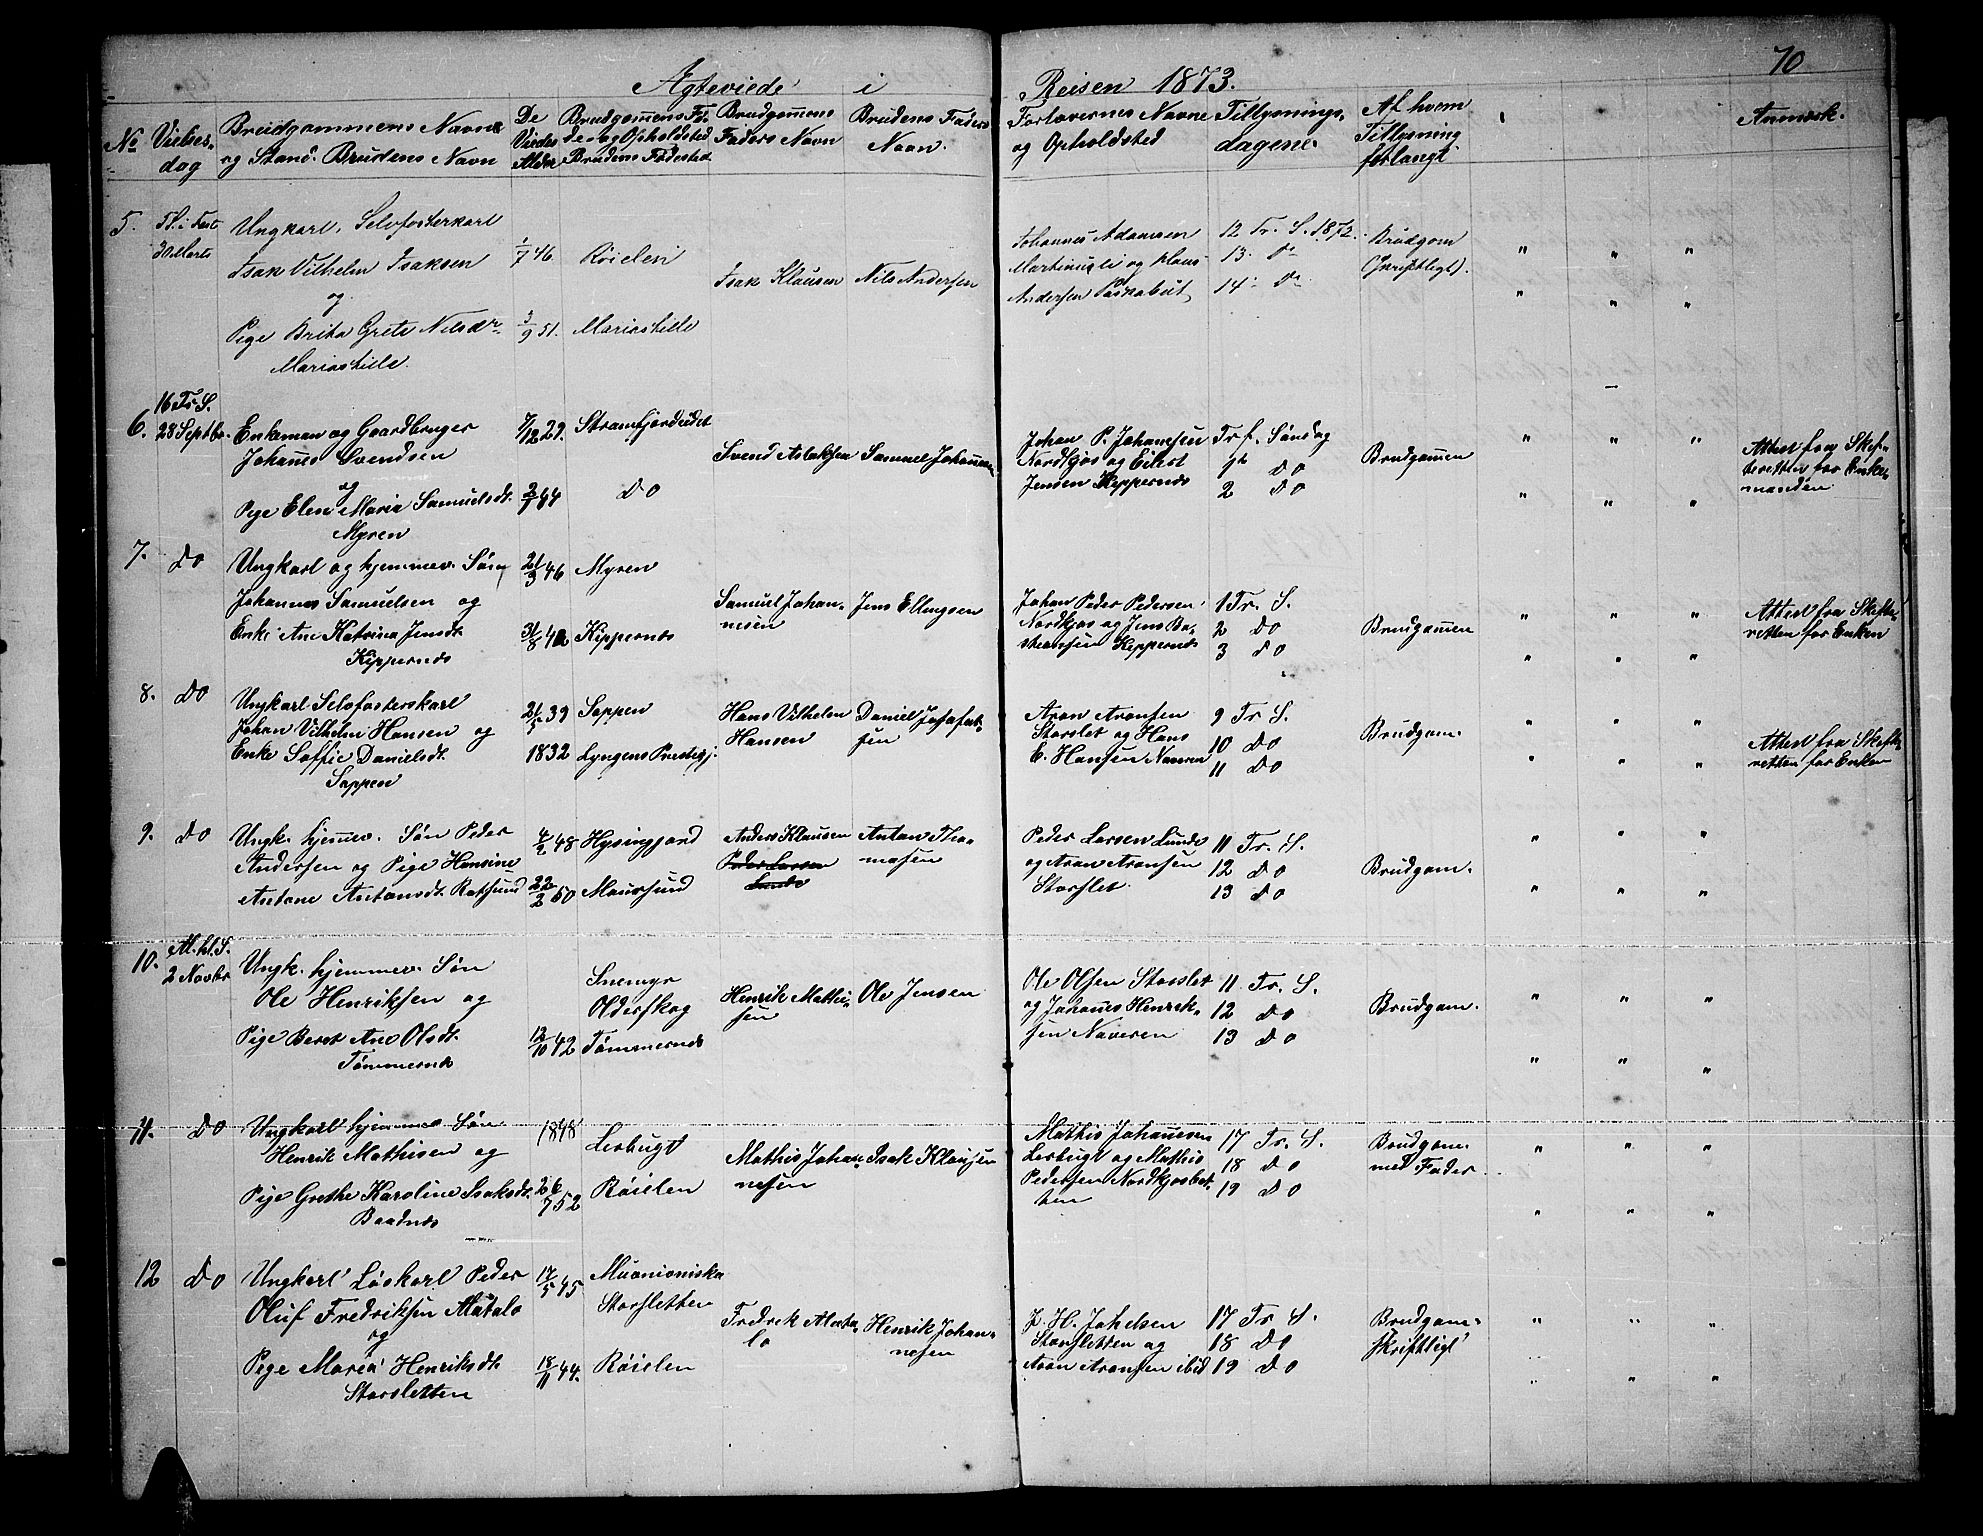 70
Ægteviede i Reisen 1873.
No
Vielses-
dag
Brudgommens Navn
og Stand. Brudens Navn
De
Viedes
Alder
Brudgommens Fø-
de- og Opholdsted
Brudens Fødested
Brudgommens
Faders Navn
Brudens Faders
Navn.
Forlovernes Navne
og Opholdsted
Tillysnings-
dagene.
Af hvem
Tillysning
forlangt
Anmærk.
5.
5 S. i Fast
30 Marts
Ungkarl, Selvfosterkarl
Isak Vilhelm Isaksen
og
Pige Brita Grete Nilsdr
Mariashille.
1/7 46
3/9 51.
Röielen
Mariashille
Isak Klausen
Nils Andersen
Johannes Adamsen
Martinusli og Klaus
Andersen Paskabut
12 Tr. S. 1872.
13. Do
14. Do
Brudgom
(skriftligt).
6.
16 Tr. S.
28 Septbr.
Enkeman og Gaardbruger
Johanes Svendsen
og
Pige Elen Maria Samuelsdt.
Myren
7/12 29.
2/7 44
Straumfjordeidet
Do
Svend Aslaksen
Samuel Johannes
Johan P. Johannesen
Nordkjos og Eilert
Jensen Kippernæs
Tr. f. Søndag
1ste Do
2 Do
Brudgommen
Attest fra Skif-
teretten for Enke-
manden
7.
Do
Ungkarl og hjemmev. Søn
Johannes Samuelsen og
Enke Ane Katrina Jensdt.
Kippernæs
21/3 46
31/8 42
Myren
Kippernæs
Samuel Johan-
nesen
Jens Ellingsen
Johan Peder Pedersen
Nordkjos og Jens Ba-
stiansen Kippernæs
1 Tr. S.
2 Do
3 Do
Brudgommen
Attest fra Skifte-
retten for Enken
8.
Do
Ungkarl Selvfosterskarl
Johan Vilhelm Hansen og
Enke Soffie Danielsdt.
Sappen
21/5 39
1832
Sappen
Lyngens Prestegj.
Hans Vilhelm
Hansen
Daniel Josafat-
sen
Aron Aronsen
Storslet og Hans
E. Hansen Navren
9 Tr. S.
10 Do
11 Do
Brudgom.
Attest fra Skifte-
retten for Enken
9.
Do
Ungk. hjemmev. Søn Peder
Andersen og Pige Hansine
Antone Antonsdt. Rotsund
4/2 48
22/2 50
Hysingjord
Maursund
Anders Klausen
Peder Larsen
Lunde
Anton Tho-
masen
Peder Larsen Lunde
og Aron Aronsen
Storslet.
11 Tr. S.
12 Do
13 Do
Brudgom.
10.
Al. hl. S.
2 Novbr
Ungk. hjemmev. Søn
Ole Henriksen og
Pige Beret Ane Olsdt.
Tømmernes
12/10 42
Snemyr
Olderskog
Tømmernes
Henrik Mathi-
sen
Ole Jensen
Ole Olsen Storslet
og Johanes Henrik-
sen Naveren
11 Tr. S.
12 Do
13 Do
Brudgom.
11.
Do
Ungkarl hjemmev Søn
Henrik Mathisen og
Pige Grethe Karoline Isaksdt.
Baadnæs
1848
26/7 52
Lerbugt
Röielen
Mathis Johan-
nesen
Isak Klausen
Mathis Johannesen
Lerbugt og Mathis
Pedersen Nordkjosbot-
ten
17 Tr. S.
18 Do
19 Do
Brudgom.
med Fader
12
Do
Ungkarl Løskarl Peder
Oluf Fredriksen Alatalo
og
Pige Maria Henriksdt.
Storsletten
17/5 45
18/11 44.
Muonioniska
Storsletten
Röielen
Fredrek Alata-
lo
Henrik Johan-
nesen
J. H. Johelsen
Storsletten og
Aron Aronsen ibid
17 Tr. S.
18 Do
19 Do
Brudgom.
skriftligt